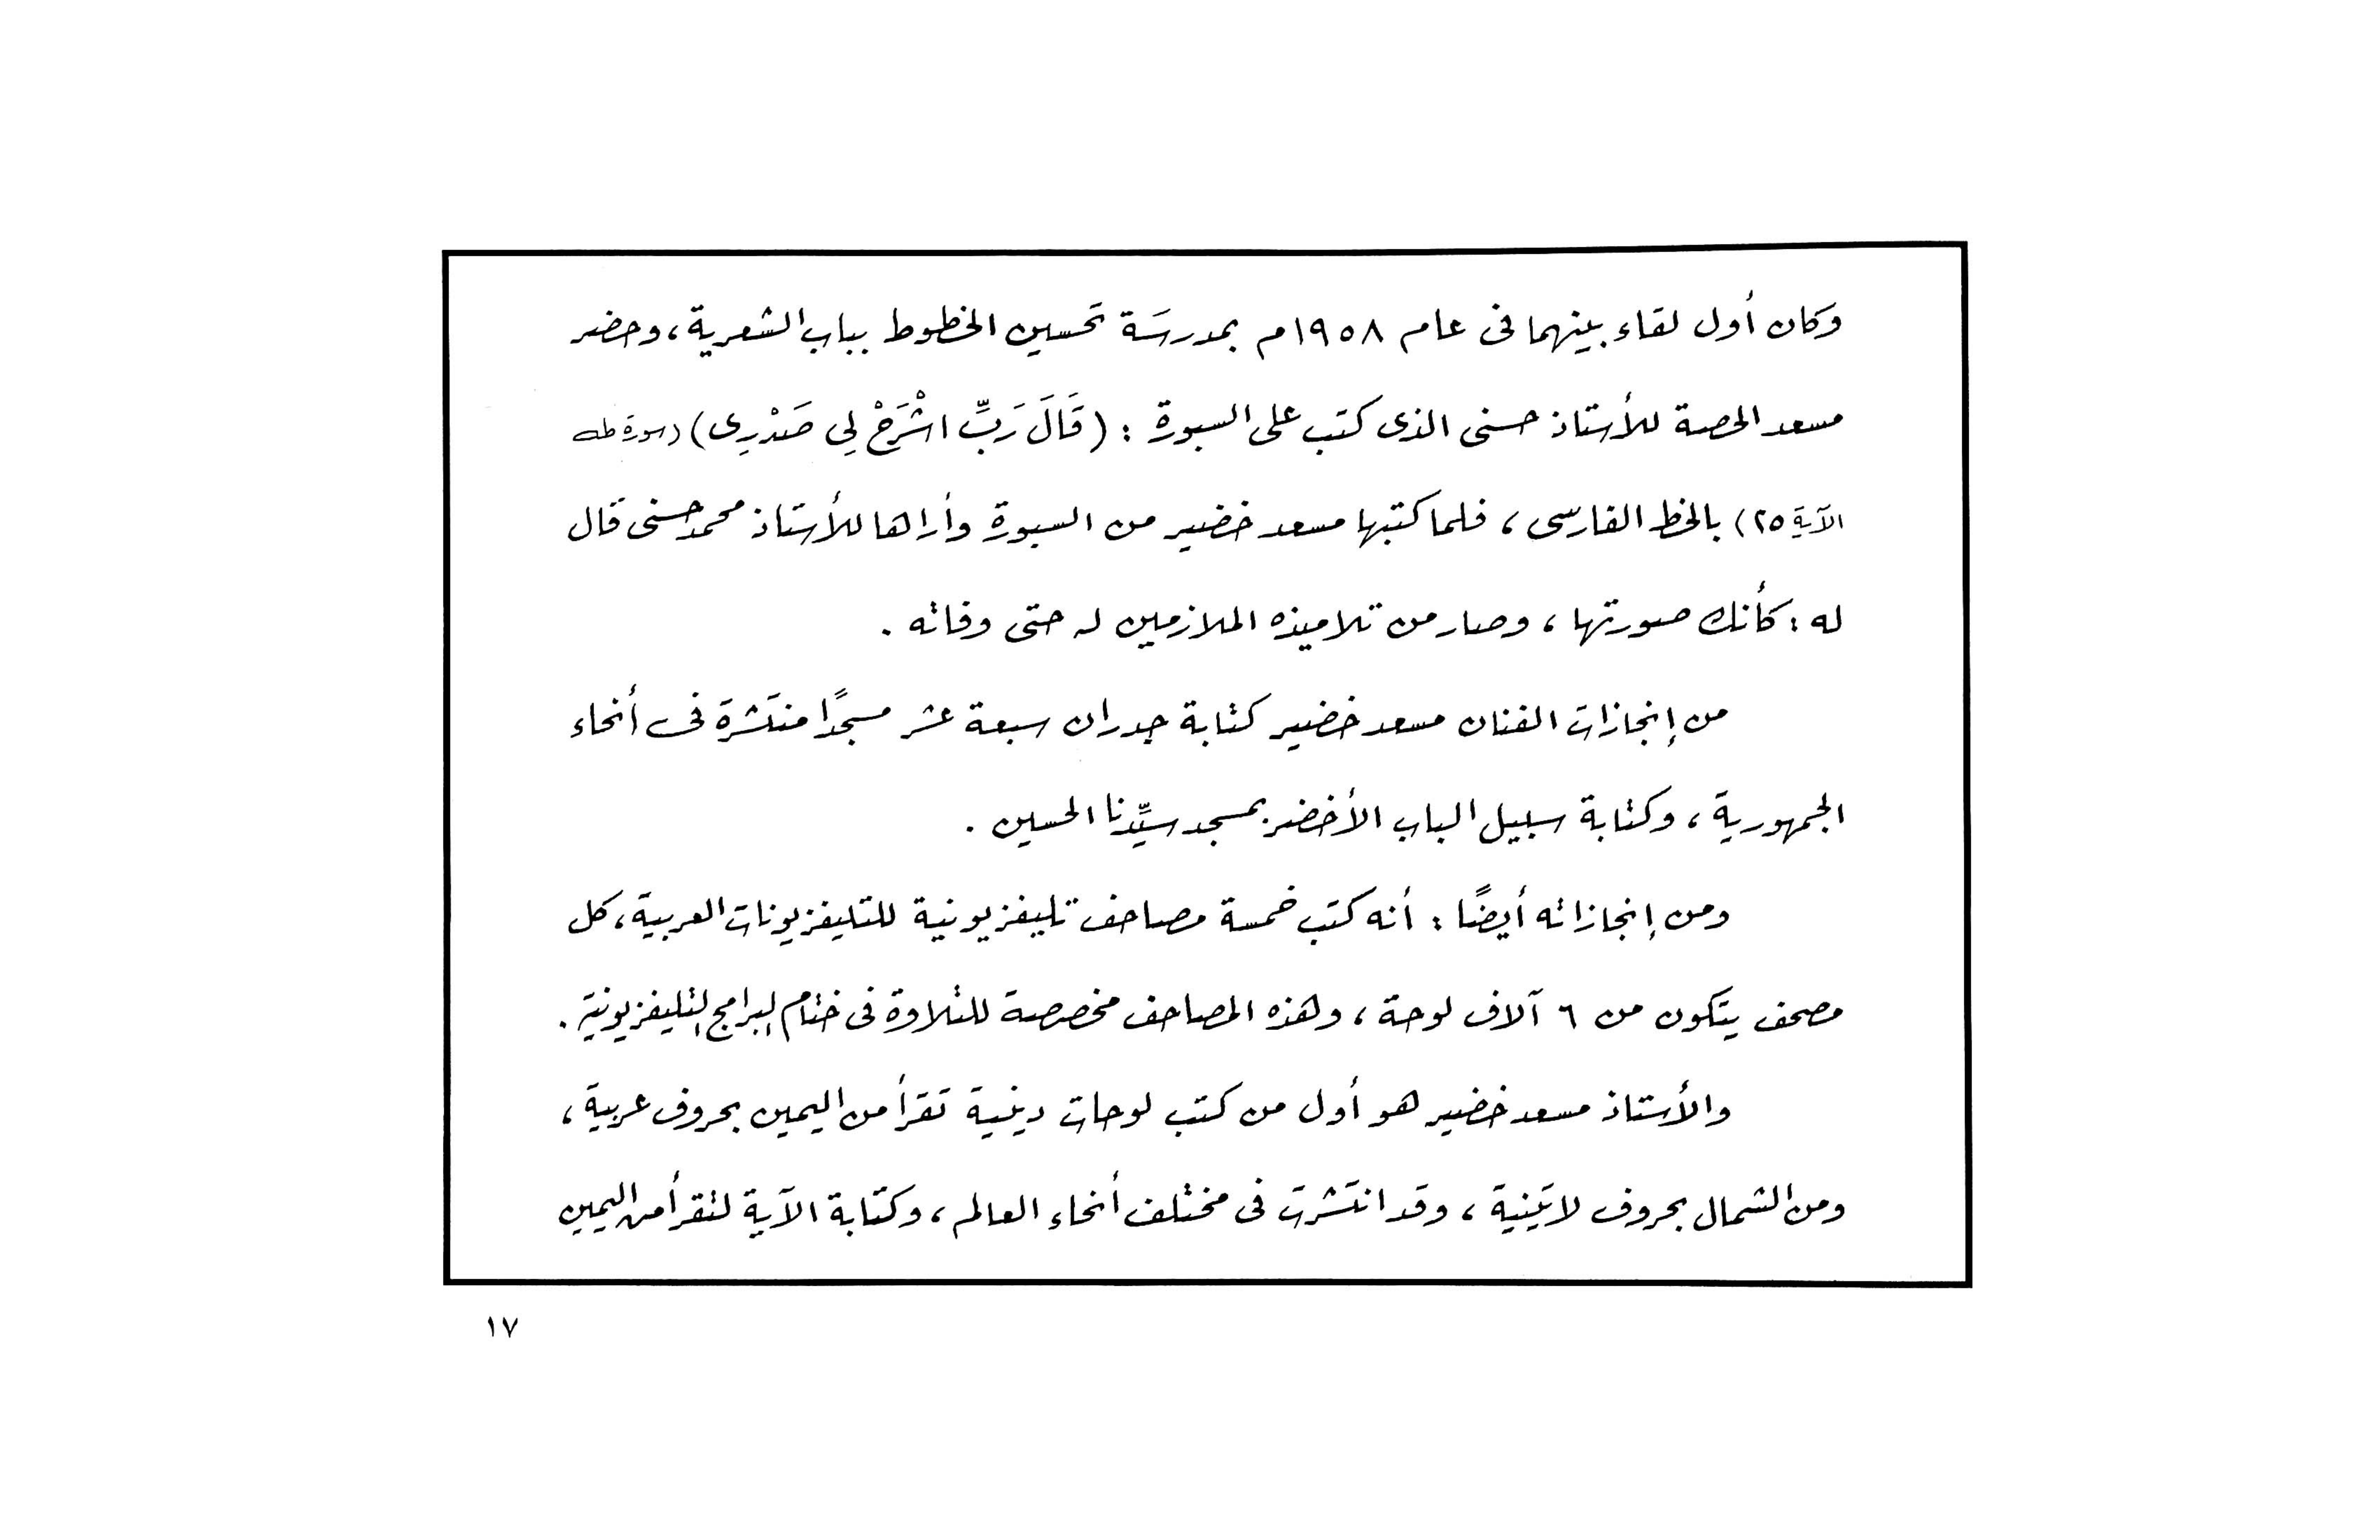 وكان أول لقاء بينهما فى عام ١٩٥٨م بمدرسَة تحسين الخطوط بباب الشعرية، وحضر
مسعد الحصة للأستاذ حسنى الذى كتب على السبورة : (قَالَ رَبِّ اشْرَحْ لِي صَدْرِى) (سورة طه
الآية ٢٥) بالخط الفارسى، فلما كتبها مسعد خضير من السبورة وأراها للأستاذ محمد حسنى قال
له : كأنك صورتها، وصار من تلاميذه الملازمين له حتى وفاته .
من إنجازات الفنان مسعد خضير كتابة جدران سبعة عشر مسجدًا منتشرة فى أنحاء
الجمهورية، وكتابة سبيل الباب الأخضر بمسجد سيِّدنا الحسين .
ومن إنجازاته أيضًا : أنه كتب خمسة مصاحف تليفزيونية للتليفزيونات العربية، كل
مصحف يتكون من ٦ آلاف لوحة، وهذه المصاحف مخصصة للتلاوة فى ختام البرامج التليفزيونية .
والأستاذ مسعد خضير هو أول من كتب لوحات دينية تقرأ من اليمين بحروف عربية،
ومن الشمال بحروف لاتينية، وقد انتشرت فى مختلف أنحاء العالم، وكتابة الآية لتقرأ من اليمين
١٧